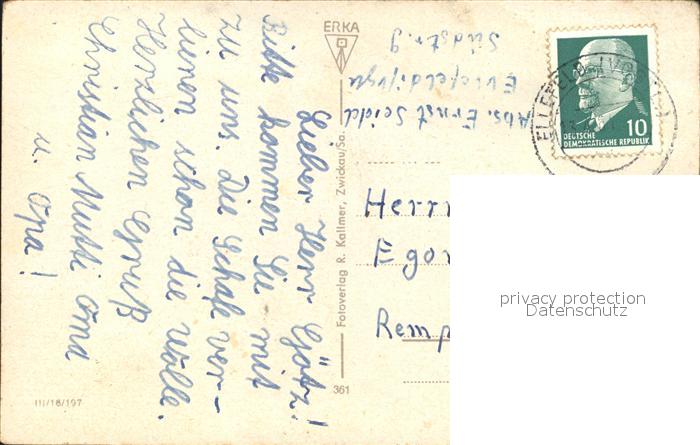 Lieber Herr Götz!
Bitte kommen Sie mit
zu uns. Die Schafe ver-
lieren schon die Wolle.
Herzlichen Gruß
Christian Mutti Oma
u. Opa!
ERKA
Fotoverlag R. Kallmer, Zwickau/Sa.
361
III/18/197
Abs. Ernst Seidel
Ellefeld i/Vogtl.
Südstr. 9
10
DEUTSCHE
DEMOKRATISCHE REPUBLIK
Herrn
Egon
Remp
privacy protection
Datenschutz